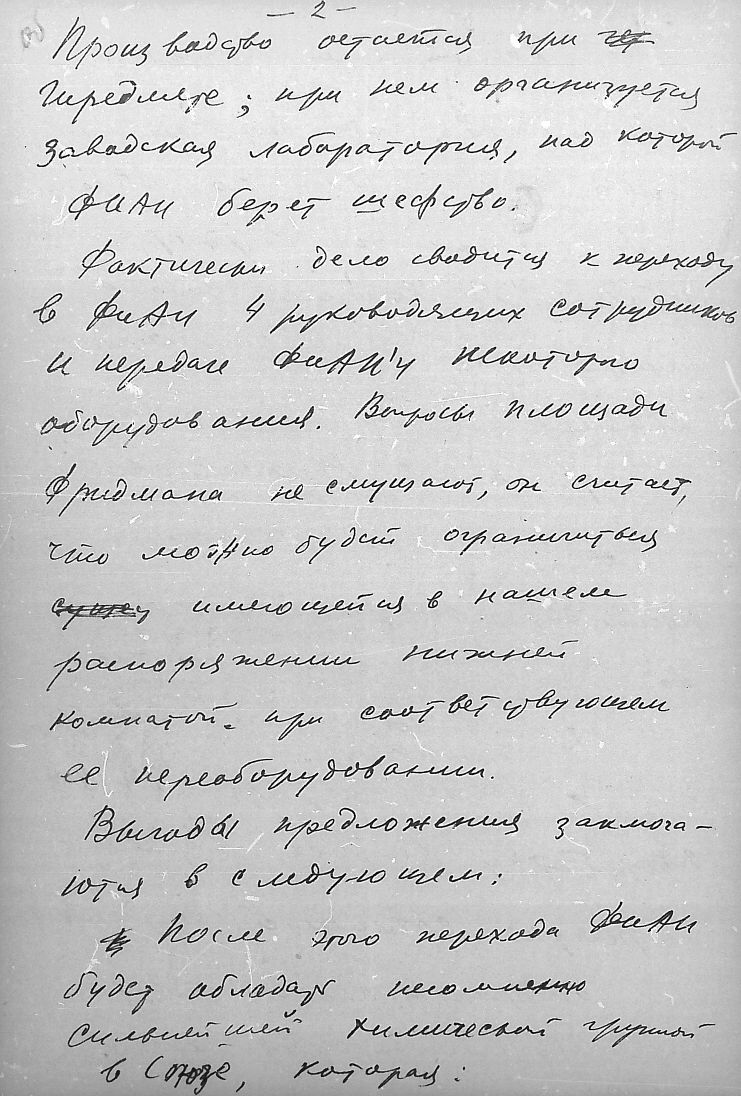 — 2 —
Производство остается при
Гиредмете; при нем организуется
заводская лаборатория, над которой
ФИАН берет шефство.
Фактически дело сводится к переходу
в ФИАН 4 руководящих сотрудников
и передаче ФИАН'у некоторого
оборудования. Вопросы площади
Фридмана не смущают, он считает,
что можно будет ограничиться
имеющейся в нашем
распоряжении нижней
комнатой при соответствующем
ее переоборудовании.
Выгоды предложения заключа-
ются в следующем:
После этого перехода ФИАН
будет обладать несомненно
сильнейшей химической группой
в Союзе, которая: